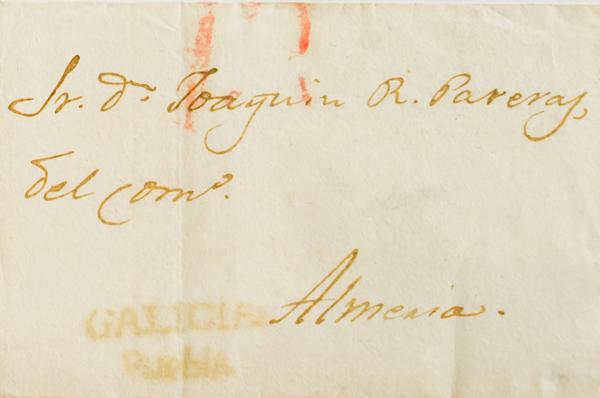 Sr. Dn. Joaquin R. Pareras,
del como.
Almeria.
GALICIA
Puebla